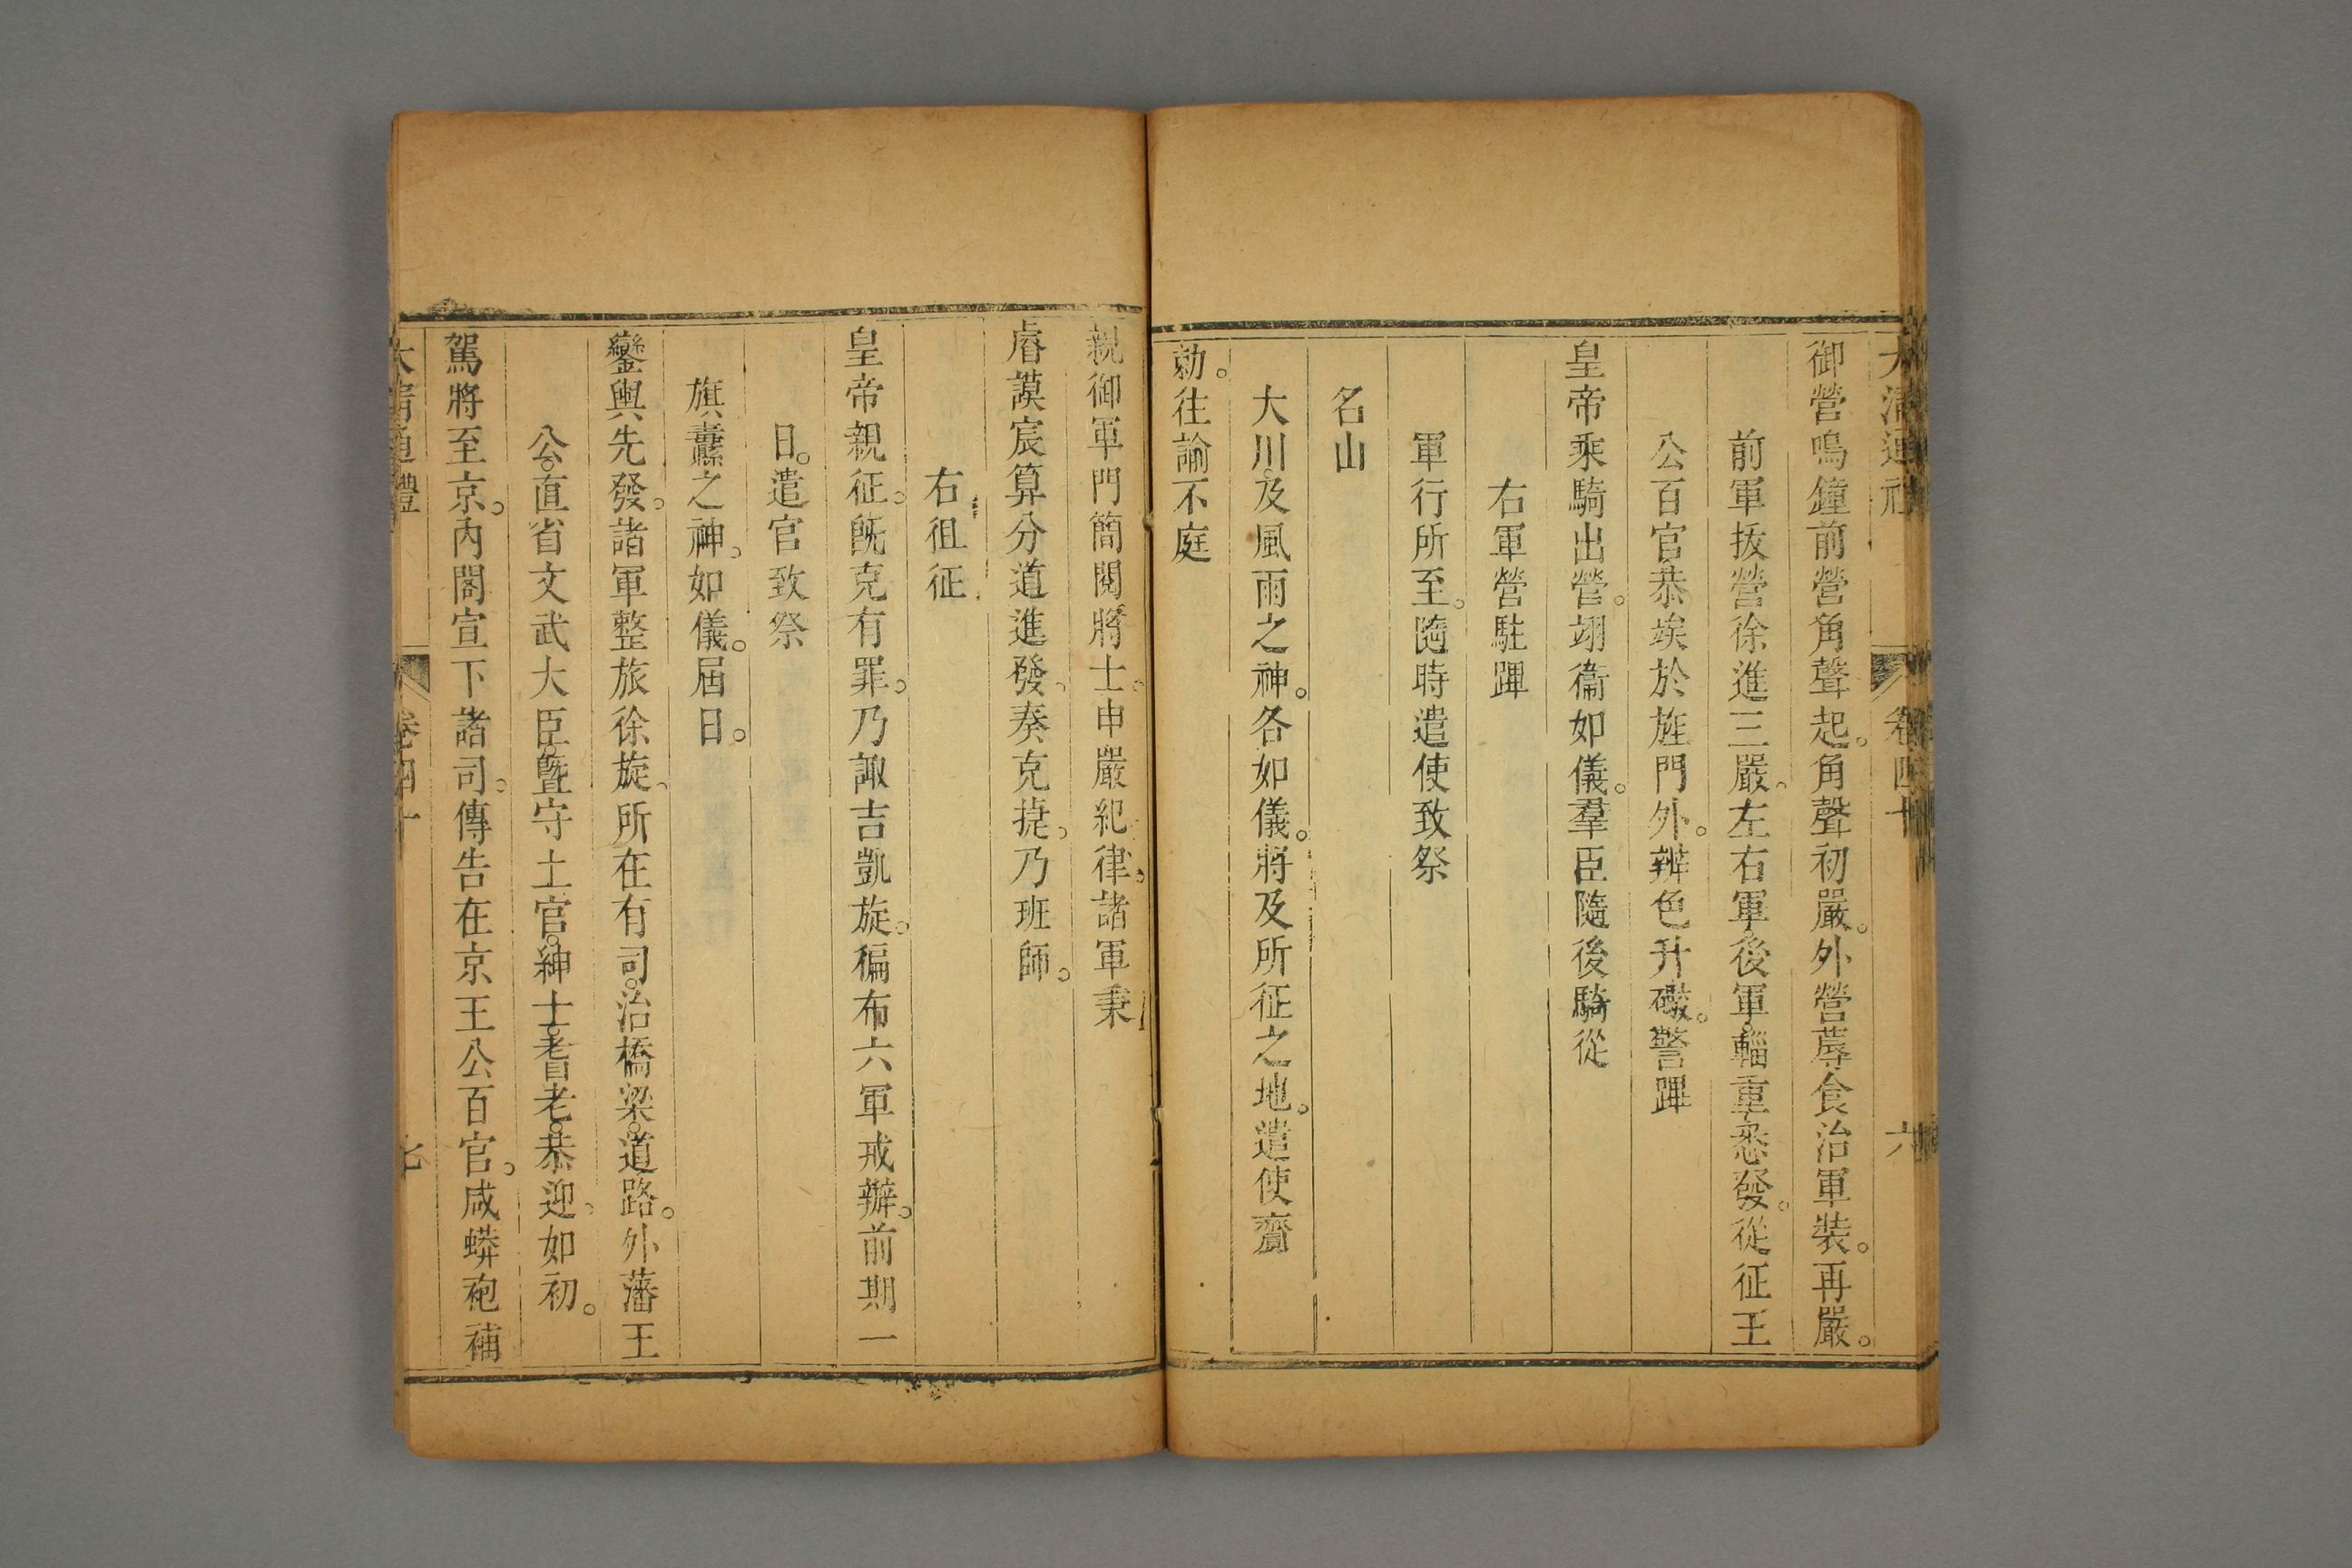 大清通禮 卷四十 六
御營鳴鐘前營角聲起。角聲初嚴。外營蓐食治軍裝。再嚴。
前軍拔營徐進三嚴。左右軍。後軍。輜重悉發。從征王
公百官恭竢於旌門外。辨色升礮。警蹕
皇帝乘騎出營。翊衞如儀。羣臣隨後騎從
右軍營駐蹕
軍行所至。隨時遣使致祭
名山
大川。及風雨之神。各如儀。將及所征之地。遣使齎
勅。往諭不庭
親御軍門簡閱將士。申嚴紀律。諸軍秉
睿謨宸算分道進發。奏克捷。乃班師。
右徂征
皇帝親征。旣克有罪。乃諏吉凱旋。徧布六軍戒辦。前期一
日。遣官致祭
旗纛之神。如儀。屆日。
鑾輿先發。諸軍整旅徐旋。所在有司。治橋梁。道路。外藩王
公。直省文武大臣。曁守土官。紳士。耆老。恭迎。如初。
駕將至京。內閣宣下諸司。傳告在京王公百官。咸蟒袍補
大清通禮 卷四十 七